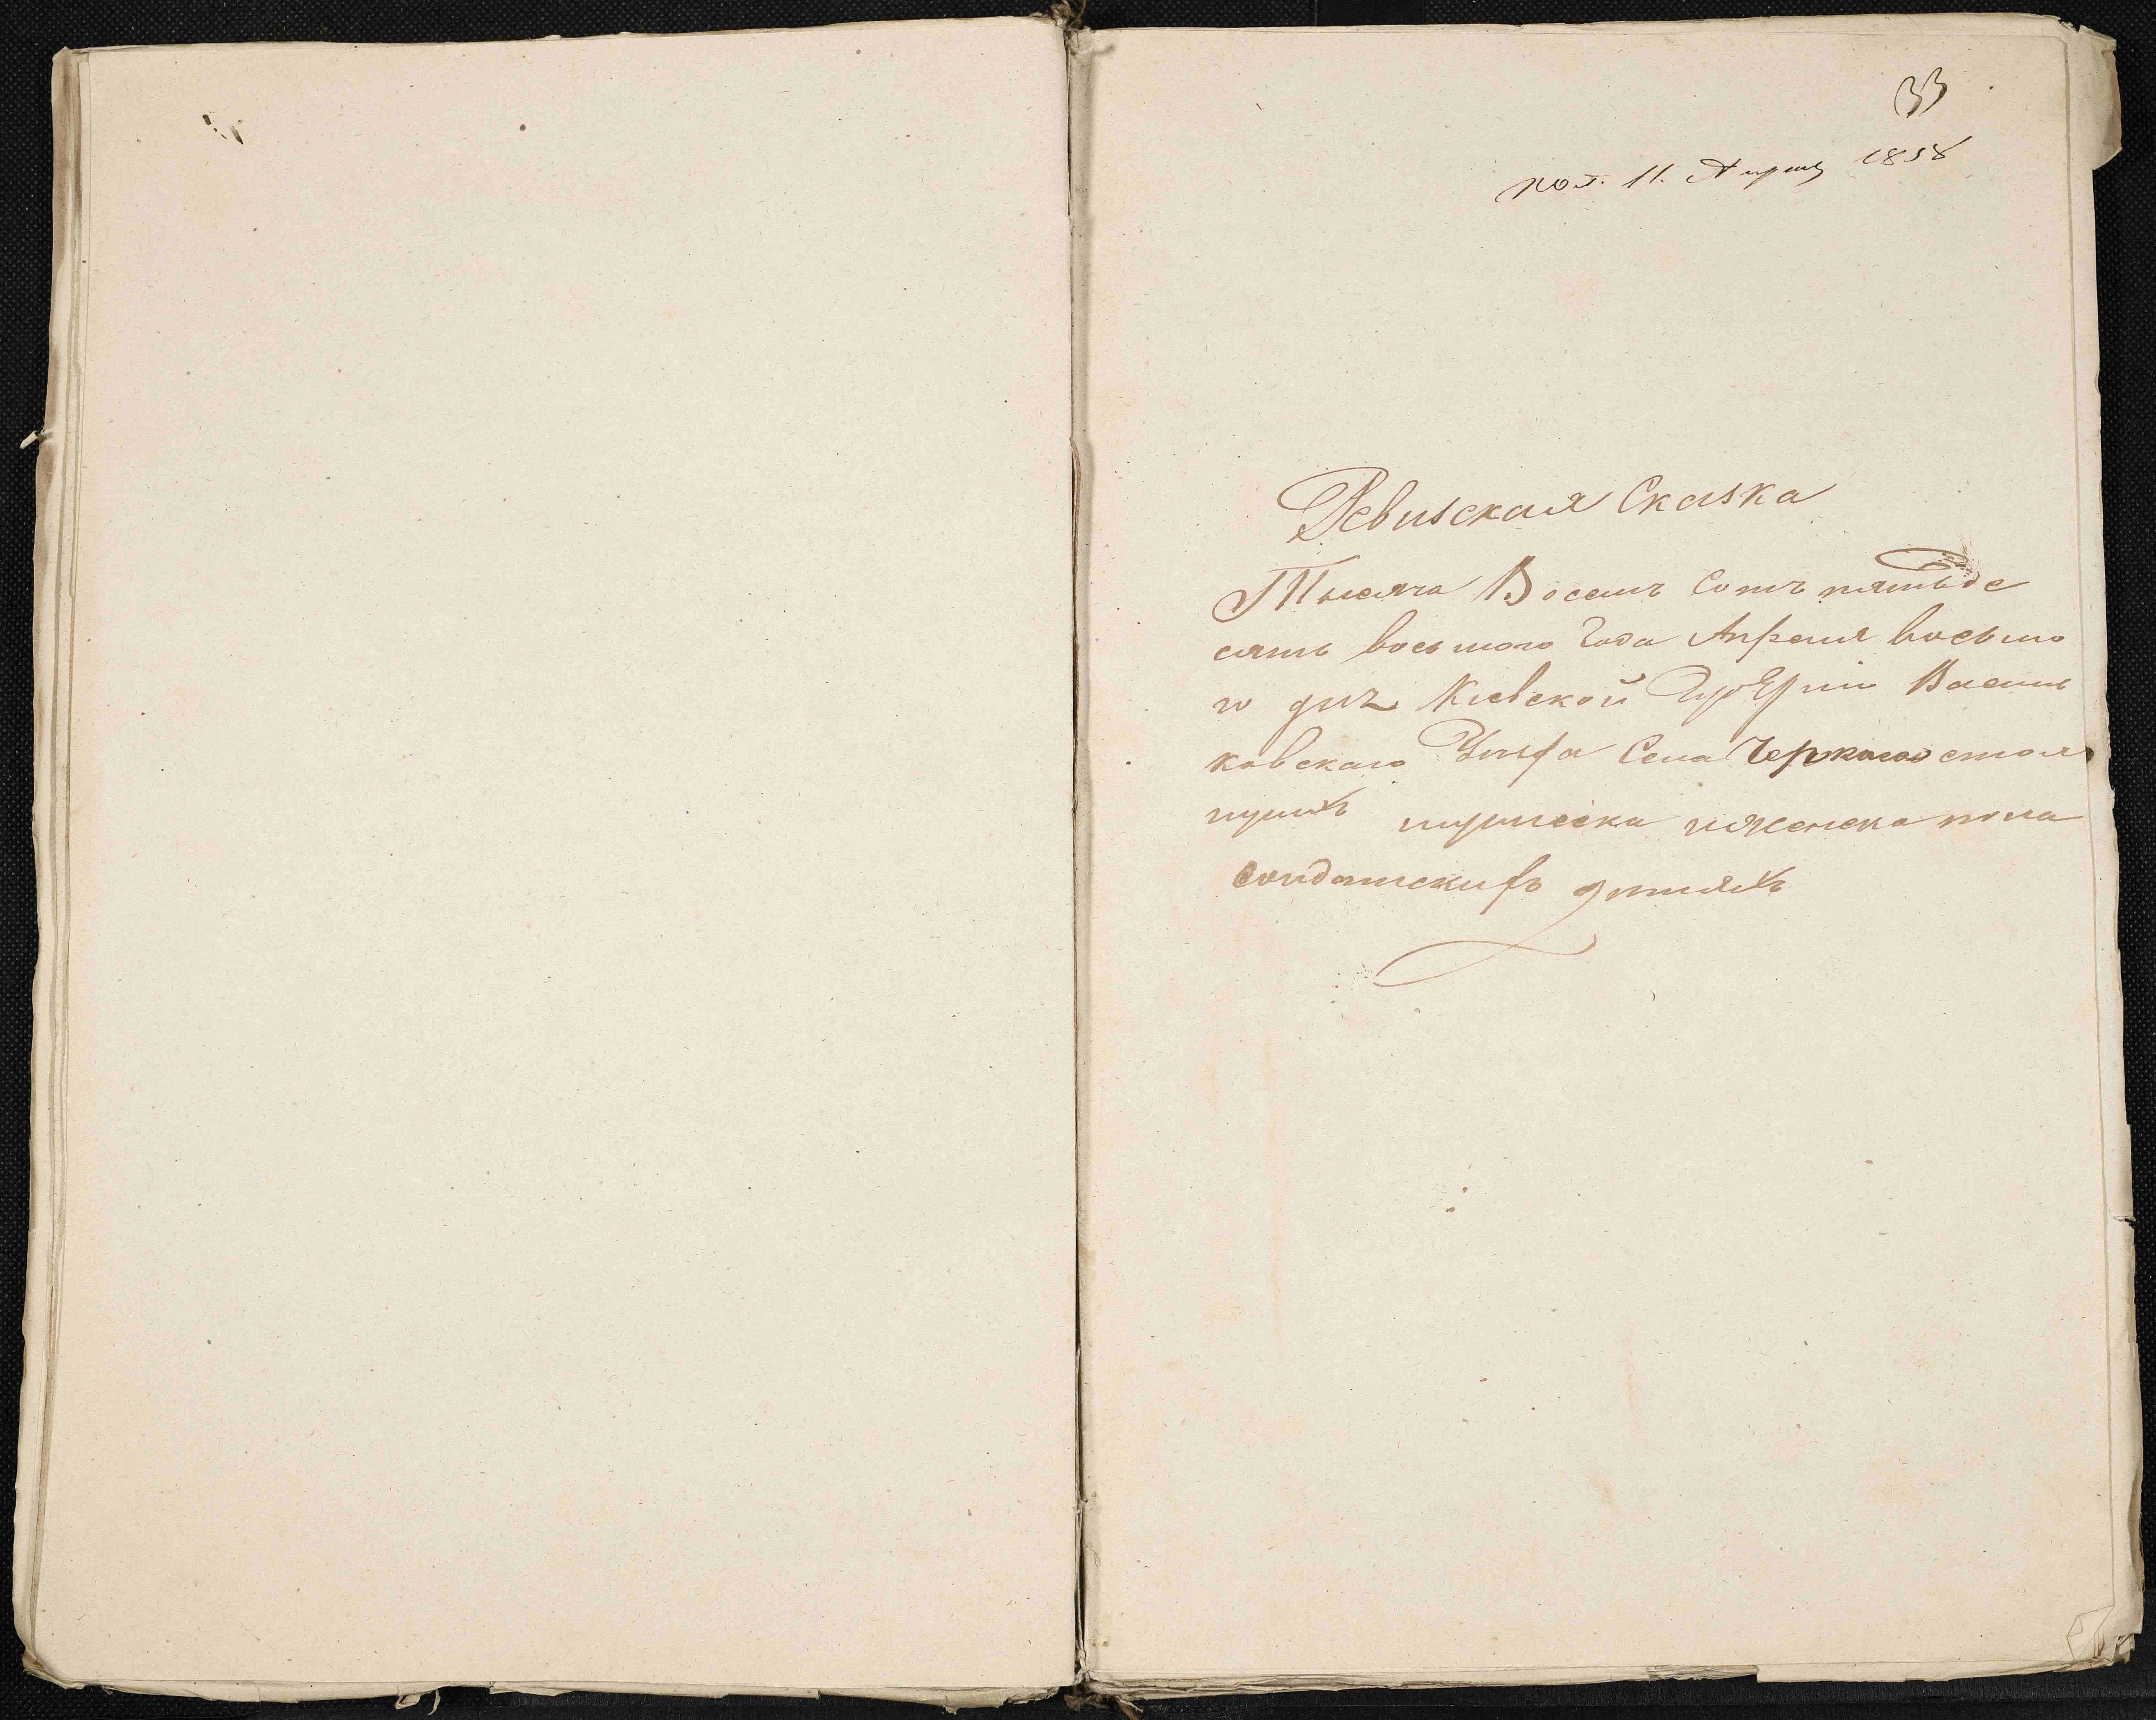 33
пол. 11. Апреля 1858
Ревиская Сказка
Тысяча Восемъ Сотъ пятьде
сятъ восьмого Года Апреля восьмо
го дня Киевской Губерніи Василь
ковскаго Уезда Села Черкаса о состоя
щихъ мужеска иженска пола
солдатскихъ детяхъ